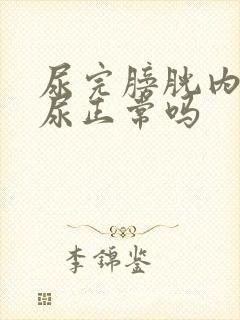 尿完膀胱内
尿正常吗
李锦鉴